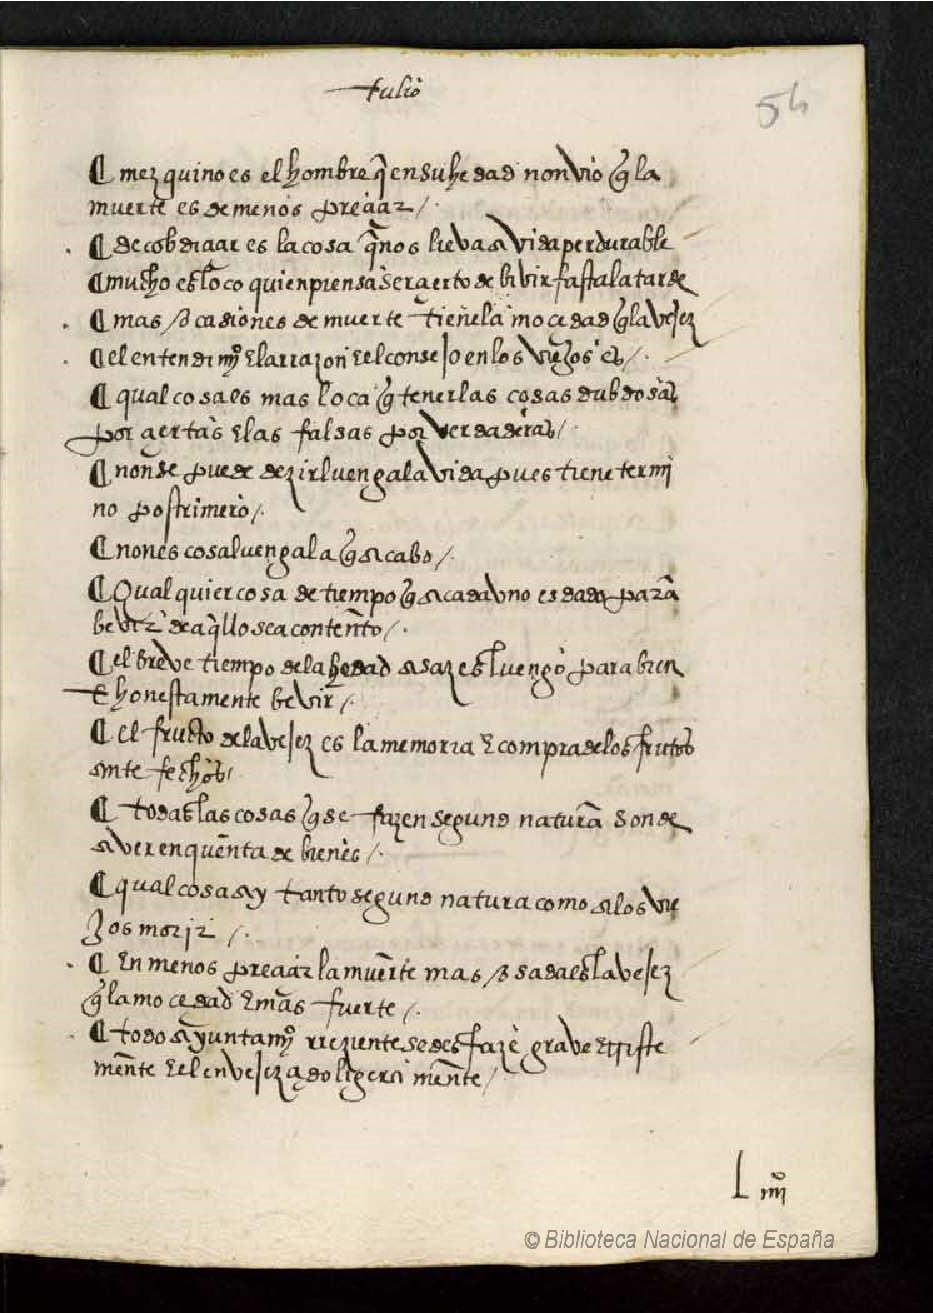 tulio
54
¶ mezquino es el hombre q̃ en su hedad non vio q̃ la
muerte es de menos preçiar /.
¶ de cobdiçiar es la cosa q̃ nos lieva a vida perdurable
¶ mucho es loco quien piensa ser çierto de bivir fasta la tarde
¶ mas ocasiones de muerte tiene la moçedad q̃ la vejez
¶ el entendimº τ la rrazon τ el consejo en los viejos es /.
¶ qual cosa es mas loca q̃ tener las cosas dubdosas
por çiertas τ las falsas por verdaderas /.
¶ non se puede dezir luenga la vida pues tiene termi
no postrimero /.
¶ non es cosa luenga la q̃ a cabo /.
¶ Qual quier cosa de tiempo q̃ a cada uno es dado para
bevir de aq̃llo sea contento /.
¶ el breve tiempo de la hedad asaz es luengo para bien
τ honestamente bevir /.
¶ el fructo de la vejez es la memoria τ compra de los frutos
ante fechos /
¶ todas las cosas q̃ se fazen segund natura son de
aver en quenta de bienes /.
¶ qual cosa ay tanto segund natura como a los vie
jos morir /.
¶ En menos preçiar la muerte mas osada es la vejez
q̃ la moçedad τ mas fuerte /.
¶ todo ayuntamº rreziente se desfaze grave τ triste
mente τ el envejezçido ligera mente /
L iiiiº
© Biblioteca Nacional de España